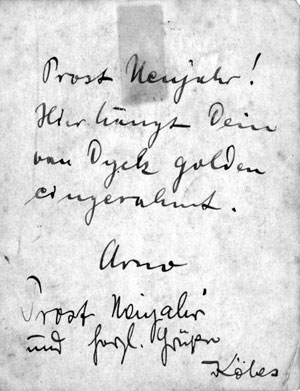 Prost Neujahr!
Hier hängt Dein
van Dyck golden
eingerahmt.
Arno
Prost Neujahr
und herzl. Grüße
Köbes